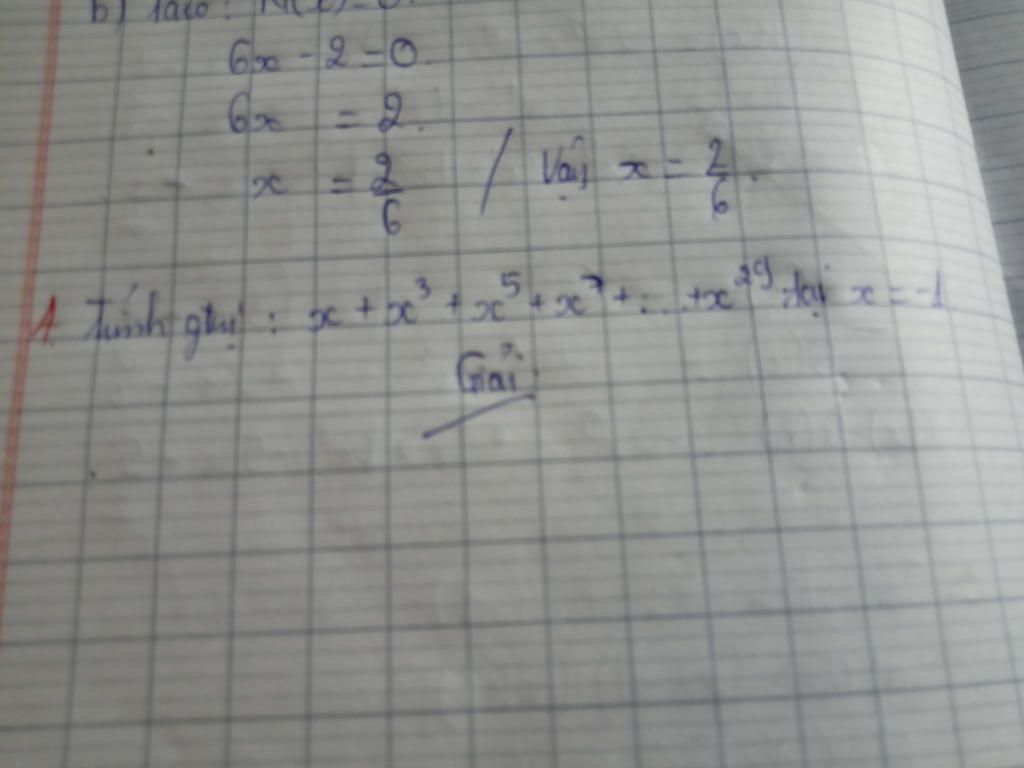 b) Ta có : N(x) = 0.
6x - 2 = 0.
6x = 2.
x = 2/6 / Vậy x = 2/6.
1. Tính gtrị : x + x³ + x⁵ + x⁷ + ... + x²⁹ tại x = -1.
Giải